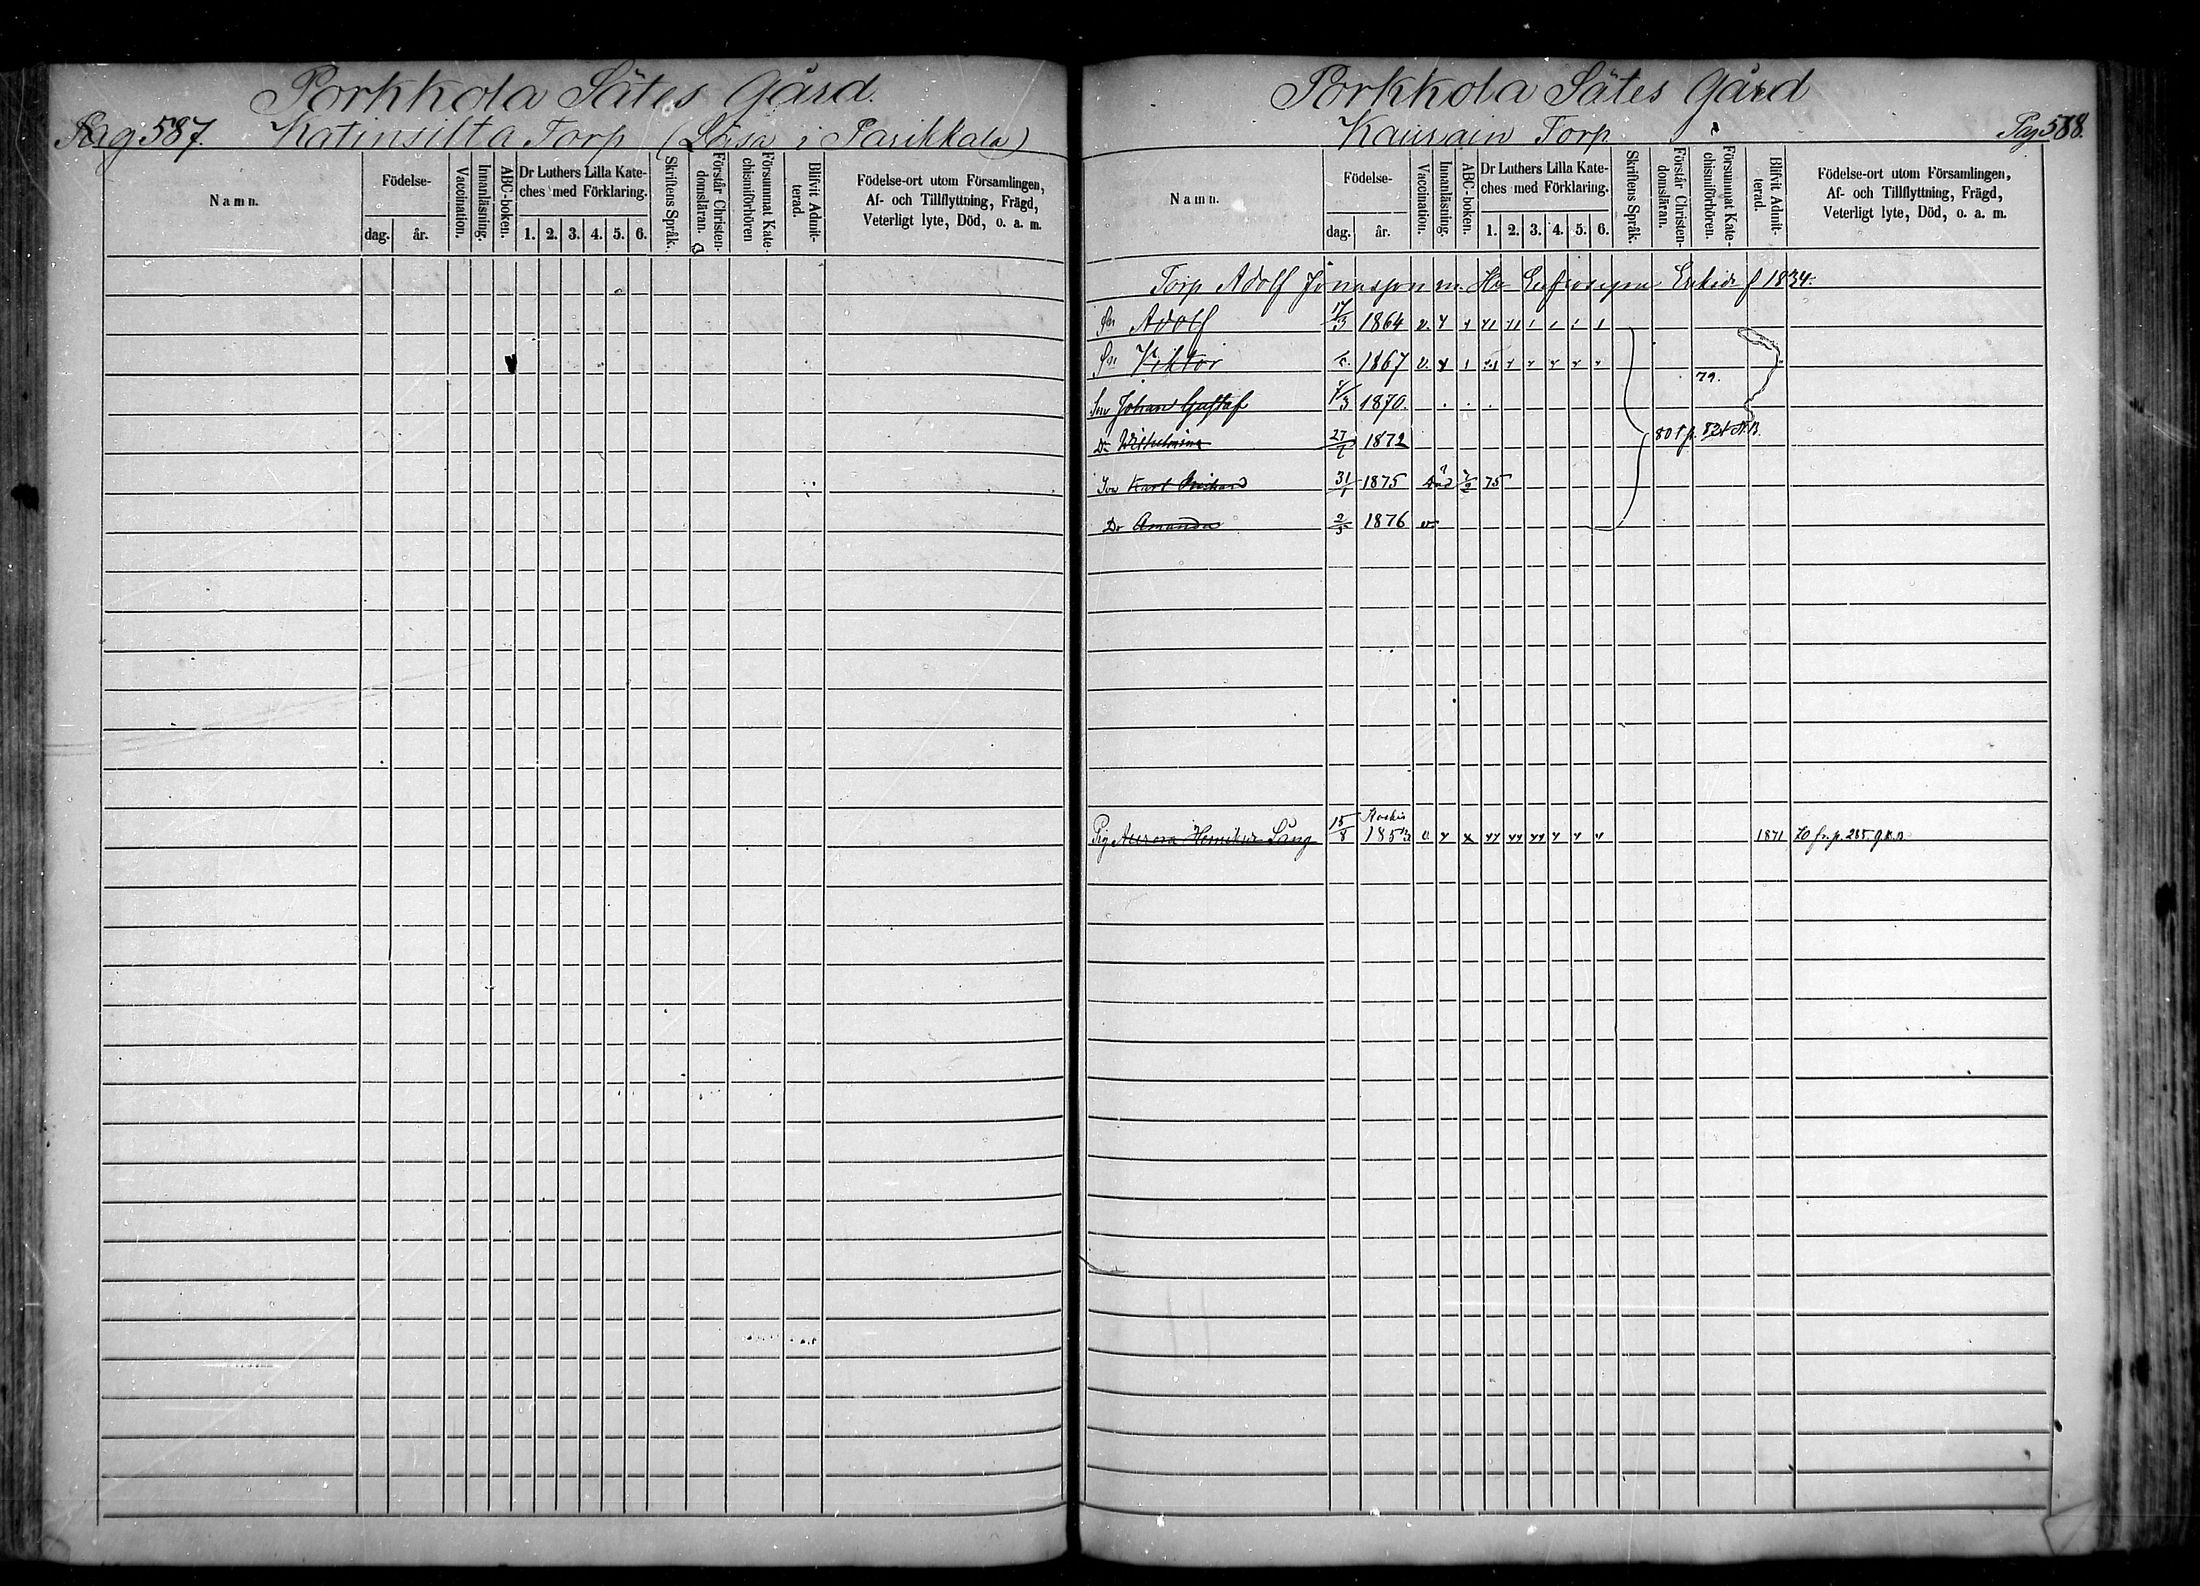 Porkkola Sätes Gård.
Pag 587. Katinsilta Torp (Läsa i Parikkala)
Namn.
Födelse-
dag.
år.
Vaccination.
Innanläsning.
ABC-boken.
Dr Luthers Lilla Kate-
ches med Förklaring.
1. 2. 3. 4. 5. 6.
Skriftens Språk.
Förstår Christen-
domsläran.
Försummat Kate-
chismiförhören
Blifvit Admit-
terad.
Födelse-ort utom Församlingen,
Af- och Tillflyttning, Frägd,
Veterligt lyte, Död, o. a. m.
Porkkola Sätes Gård
Torp Pag 588.
Namn.
Födelse-
dag.
år.
Vaccination.
Innanläsning.
ABC-boken.
Dr Luthers Lilla Kate-
ches med Förklaring.
1. 2. 3. 4. 5. 6.
Skriftens Språk.
Förstår Christen-
domsläran.
Försummat Kate-
chismiförhören.
Blifvit Admit-
terad.
Födelse-ort utom Församlingen,
Af- och Tillflyttning, Frägd,
Veterligt lyte, Död, o. a. m.
Torp Adolf Jonasson m. Hu f 1834.
Sn Adolf 17/3 1864 v.
Sn Viktor 1867 v.
79.
Son Johan Gustaf 1870.
Dr Wilhelmina 27/1 1872
Son Karl 31/1 1875 död 75
Dr Amanda 2/3 1876 v.
Pig Aurora Lång 15/8 1853 v 1871 fr. p. 285